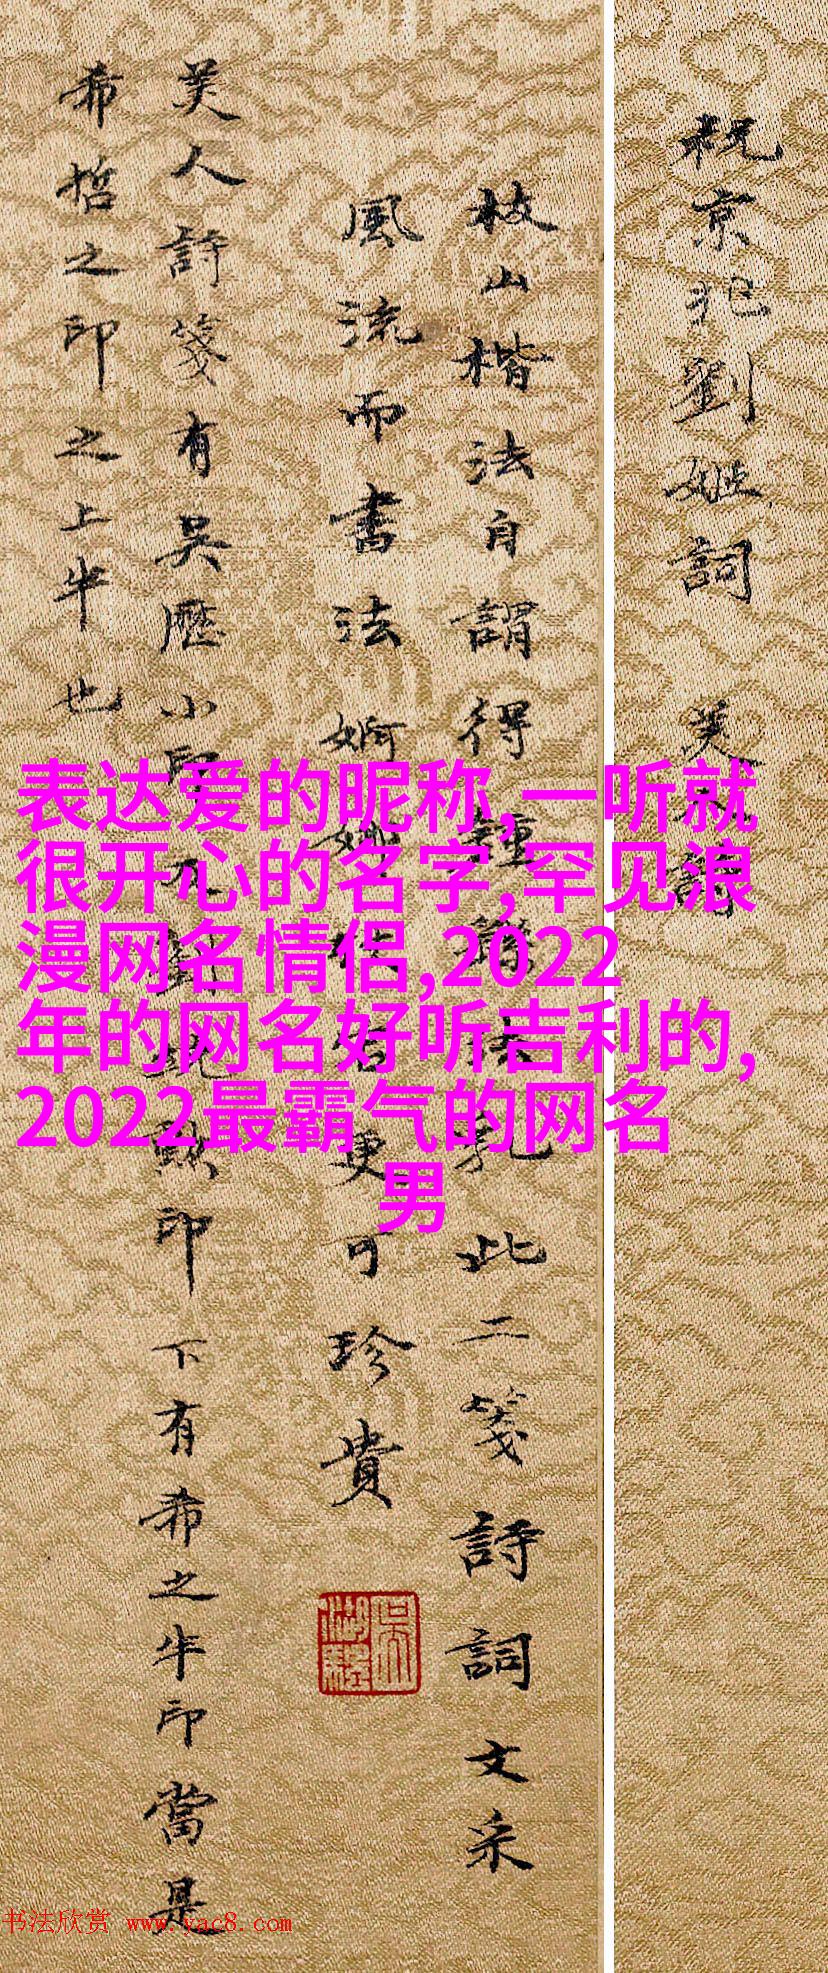 祝京兆劉姬詞
美
詞
枝山楷法自謂得鍾
法乳此二箋詩詞文采
風流而書法婀娜
更可珍貴
美人詩箋有吳歷小印
印下有希之半印當是
希哲之印之上半也
表达爱的昵称,一听就
很开心的名字,罕见浪
漫网名情侣,2022
年的网名好听吉利的,
2022最霸气的网名
男
书法欣赏 www.yac8.com